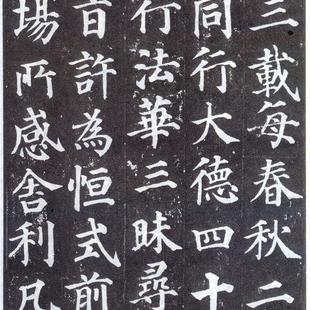 三載每春秋二
同行大德四十
行法華三昧尋
音許為恒式前
場所感舍利凡